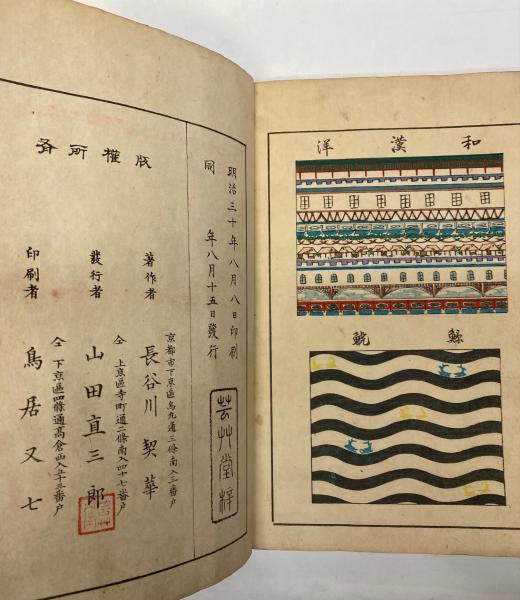 和漢洋
鯨鯱
明治三十年八月八日印刷
同年八月十五日發行
芸艸堂梓
版權所有
著作者
京都市下京區烏丸通三條南入三番戶
長谷川契華
發行者
仝上京區寺町通二條南入四十七番戶
山田直三郎
印刷者
仝下京區四條通高倉西入卒十三番戶
鳥居又七